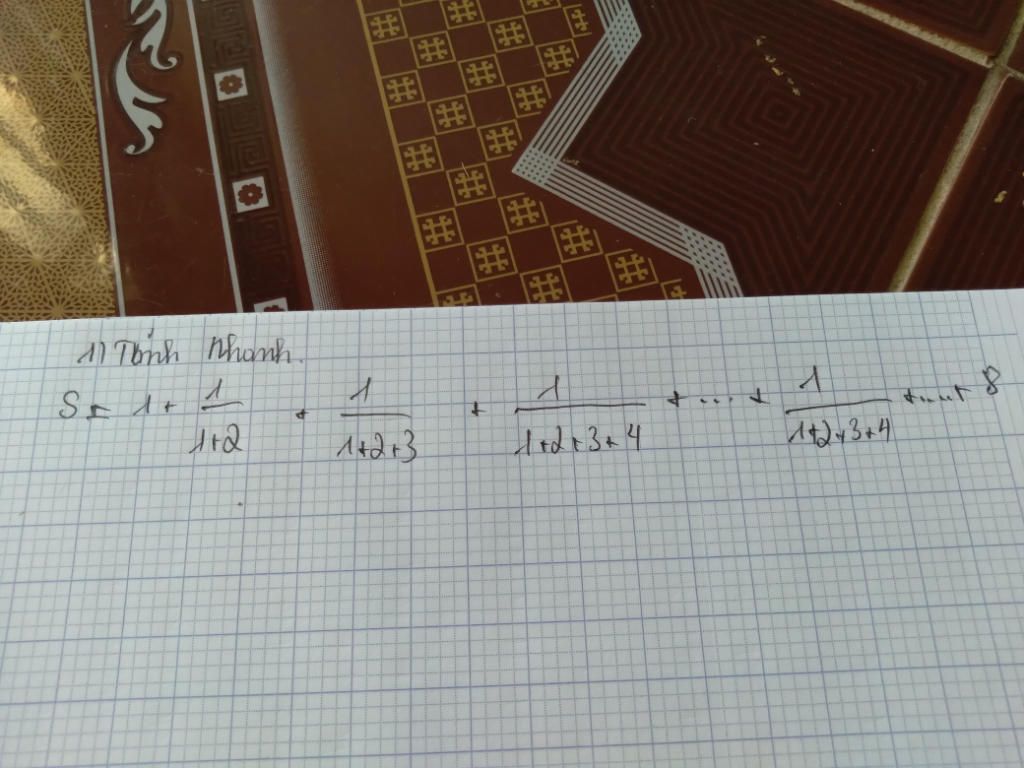 1) Tính nhanh.
S = 1 + 1/(1+2) + 1/(1+2+3) + 1/(1+2+3+4) + ... + 1/(1+2+3+4) +....+ 8